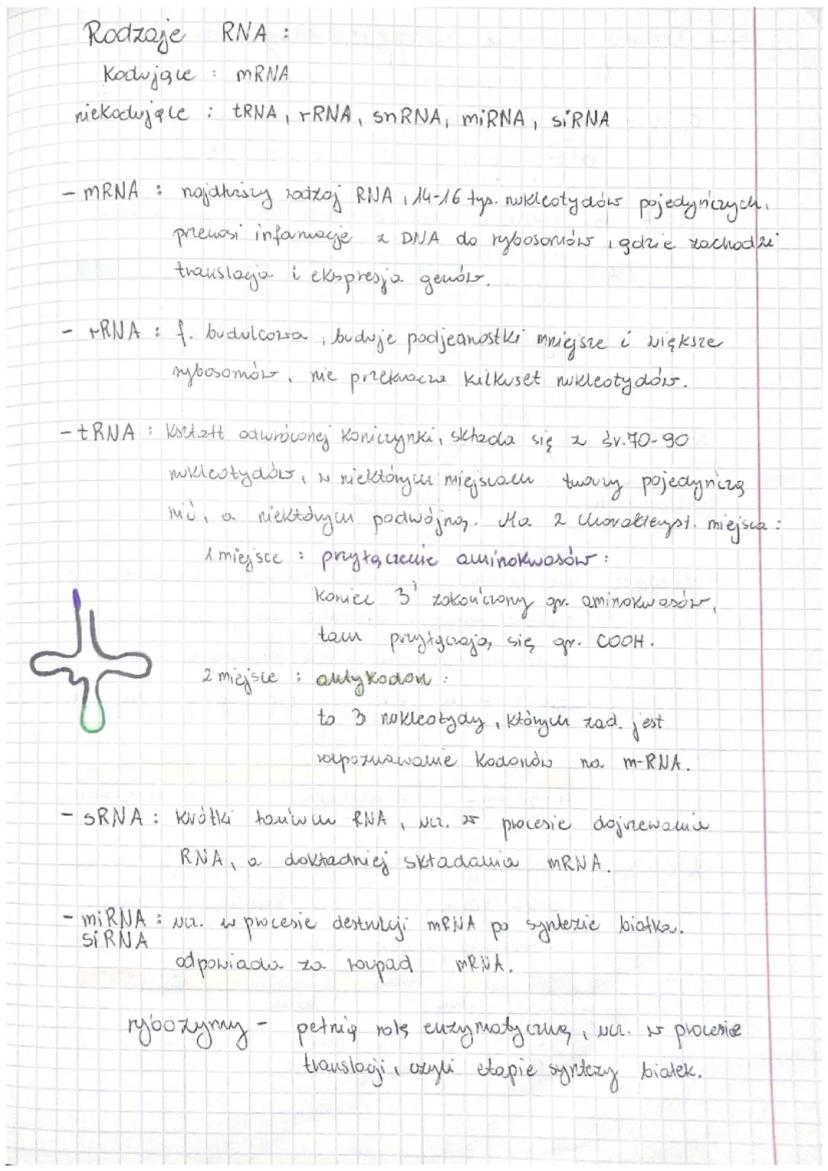 Rodzaje RNA :
Kodujące : mRNA
niekodujące : tRNA, rRNA, snRNA, miRNA, siRNA
- mRNA : najdłuższy rodzaj RNA, 14-16 tys. nukleotydów pojedyńczych,
przenosi informacje z DNA do rybosomów, gdzie zachodzi
translacja i ekspresja genów.
- rRNA : f. budulcowa, buduje podjednostki mniejsze i większe
rybosomów, nie przekracza kilkuset nukleotydów.
- tRNA : Kształt odwróconej koniczynki, składa się z śr. 70-90
nukleotydów, w niektórych miejscach tworzy pojedyńczą
nić, a niektórych podwójną. Ma 2 charakteryst. miejsca :
1 miejsce : przyłączenie aminokwasów :
koniec 3' zakończony gr. aminokwasów,
tam przyłączają się gr. COOH.
2 miejsce : antykodon :
to 3 nukleotydy, których zad. jest
rozpoznawanie kodonów na m-RNA.
- sRNA : krótki łańcuch RNA, ucz. w procesie dojrzewania
RNA, a dokładniej składania mRNA.
- miRNA : ucz. w procesie destrukcji mRNA po syntezie białka.
siRNA
odpowiada za rozpad mRNA.
rybozymy - pełnią rolę enzymatyczną, ucz. w procesie
translacji, czyli etapie syntezy białek.